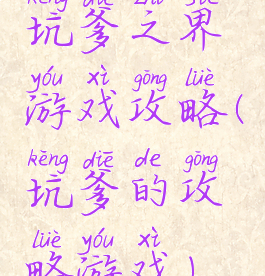 kēng diē zhī jiè
坑爹之界
yóu xì gōng lüè
游戏攻略(
kēng diē de gōng
坑爹的攻
lüè yóu xì
略游戏)